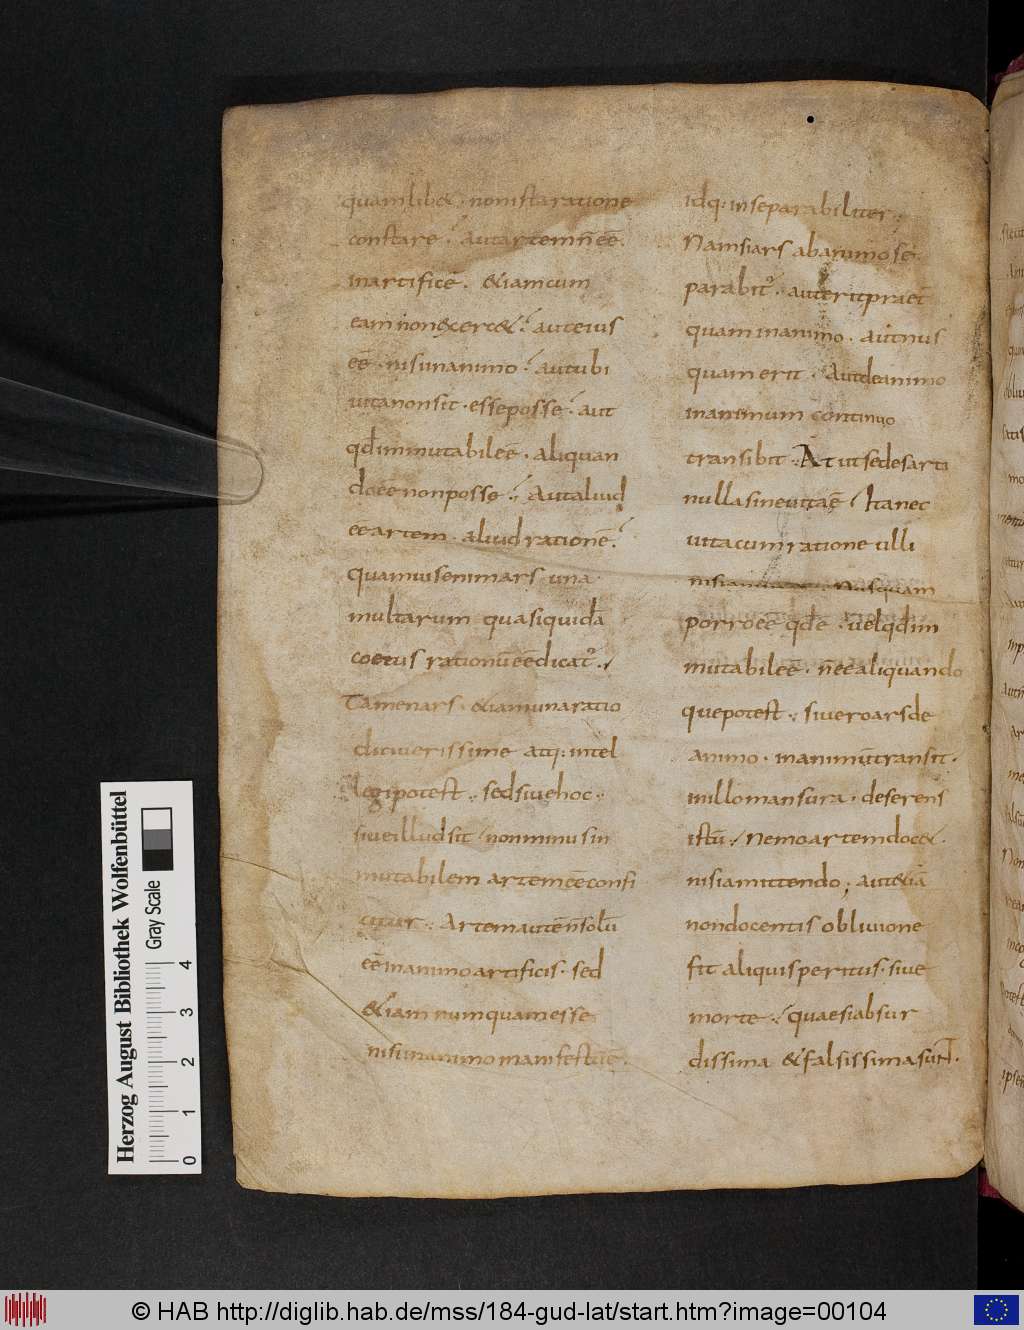 quamlib& · nonista ratione
constare · aut artem n̄ eē
in artifice · &iam cum
eam non exerc& · aut eius
eē · nisi in animo · aut ubi
uita non sit · esse posse · aut
qd̄ inmutabile ē · aliquan
do eē non posse · Aut aliud
eē artem · aliud rationē ·
quamuis enim ars una
multarum quasi quidā
coetus rationū eē dicat᷒ ·
Tamen ars · &iam una ratio
dici uerissime atq: intel
legi potest · sed siue hoc ·
siue illud sit / non minus in
mutabilem artem eē confi
citur · Artem autē n̄ solū
eē in animo artificis · sed
&iam numquam esse
nisi in animo manifestū ē ·
idq: inseparabiliter ·
Nam si ars ab animo se
parabit᷒ · aut erit praet̄
quam in animo · aut nus
quam erit · Aut de animo
in animum continuo
transibit · At ut sedes arti
nulla sine uita ē / Ita nec
uita cum ratione ulli
nisi animae · Nusquam
porro eē qd̄ ē · uel qd̄ im
mutabile ē · n̄ eē aliquando
que potest · si uero ars de
animo · in animū transit ·
in illo mansura · deserens
istū · / Nemo artem doc& ·
nisi amittendo ; aut &iā
non docentis obliuione
fit aliquis peritus · siue
morte · / quae si absur
dissima & falsissima sunt ·
Herzog August Bibliothek Wolfenbüttel
Gray Scale
0 1 2 3 4
© HAB http://diglib.hab.de/mss/184-gud-lat/start.htm?image=00104